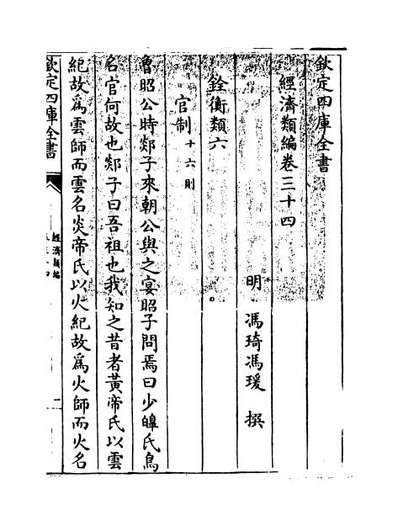 欽定四庫全書
經濟類編卷三十四
明 馮琦馮瑗 撰
銓衡類六
官制十六則
魯昭公時郯子來朝公與之宴昭子問焉曰少皞氏鳥
名官何故也郯子曰吾祖也我知之昔者黃帝氏以雲
紀故爲雲師而雲名炎帝氏以火紀故爲火師而火名
欽定四庫全書
經濟類編
二